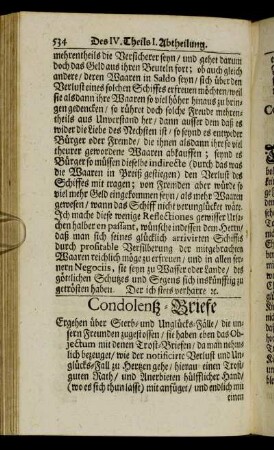 534 Des IV. Theils I. Abtheilung.
mehrentheils die Versicherer seyn/ und gehet darum
doch das Geld aus ihren Beuteln fort; ob auch gleich
andere/ deren Waaren in Saldo seyn/ sich über den
Verlust eines solchen Schiffes erfreuen möchten/ weil
sie alsdann ihre Waaren so viel höher hinaus zu brin-
gen gedencken/ so rühret doch solche Freude mehren-
theils aus Unverstand her/ dann ausser dem daß es
wider die Liebe des Nechsten ist/ so seynd es entweder
Bürger oder Fremde/ die ihnen alsdann ihre so viel
theurer gewordene Waaren abkauffen; seynd es
Bürger so müssen dieselbe indirectè (durch das was
die Waaren in Preiß gestiegen) den Verlust des
Schiffes mit tragen; von Fremden aber würde so
viel mehr Geld eingekommen seyn/ als mehr Waaren
gewesen/ wann das Schiff nicht verunglückt wäre.
Ich mache diese wenige Reflectiones gewisser Ursa-
chen halber en passant, wünsche indessen dem Herrn/
daß man sich seines glücklich arrivirten Schiffs
durch profitable Versilberung der mitgebrachten
Waaren reichlich möge zu erfreuen/ und in allen fer-
nern Negociis, sie seyn zu Wasser oder Lande/ des
göttlichen Schutzes und Segens sich inskünfftig zu
getrösten haben. Der ich stets verharre ꝛc.
Condolentz-Briefe
Ergehen über Sterb- und Unglücks-Fälle/ die un-
sern Freunden zugestossen/ sie haben eben das Ob-
jectum mit denen Trost-Briefen/ da man nehm-
lich bezeuget/ wie der notificirte Verlust und Un-
glücks-Fall zu Hertzen gehe/ hierauf einen Trost/
guten Rath/ und Anerbieten hülfflicher Hand/
(wo es sich thun lasst) mit anfüget/ und endlich mit
einen